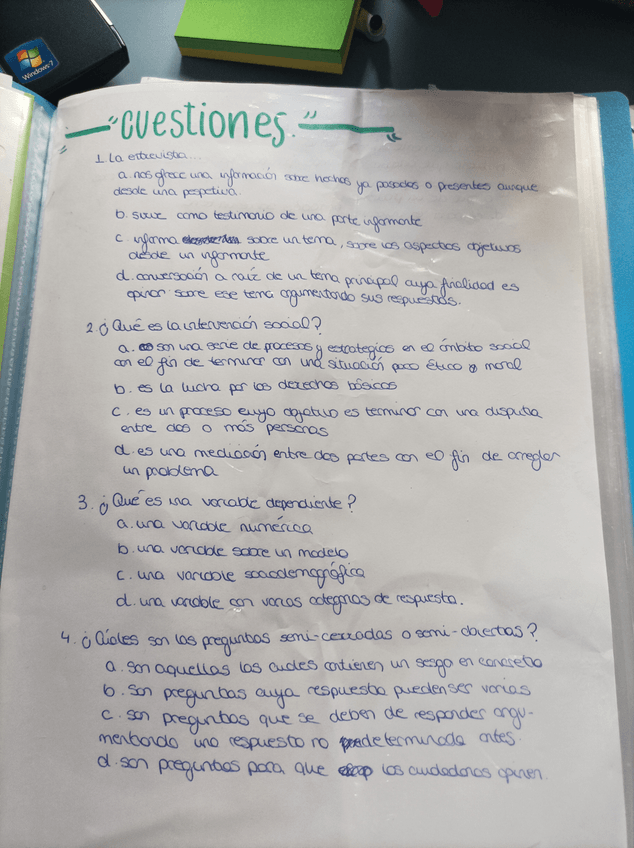 Windows 7
"CUESTIONES."
1. La entrevista...
a. nos ofrece una información sobre hechos ya pasados o presentes aunque
desde una perpetiva.
b. sirve como testimonio de una parte informante
c. informa sobre un tema, sobre los aspectos objetivos
desde un informante
d. conversación a raíz de un tema principal cuya finalidad es
opinar sobre ese tema argumentando sus respuestas.
2. ¿Qué es la intervención social?
a. son una serie de procesos y estrategias en el ámbito social
con el fin de terminar con una situación poco ético o moral
b. es la lucha por los derechos básicos
c. es un proceso cuyo objetivo es terminar con una disputa
entre dos o más personas
d. es una mediación entre dos partes con el fin de arreglar
un problema
3. ¿Qué es una variable dependiente?
a. una variable numérica
b. una variable sobre un modelo
c. una variable sociodemográfica
d. una variable con varias categorias de respuesta.
4. ¿Cuáles son las preguntas semi-cerradas o semi-abiertas?
a. son aquellas las cuales contienen un sesgo en concreto
b. son preguntas cuya respuesta pueden ser varias
c. son preguntas que se deben de responder argu-
mentando una respuesta no predeterminada antes.
d. son preguntas para que los ciudadanos opinen.